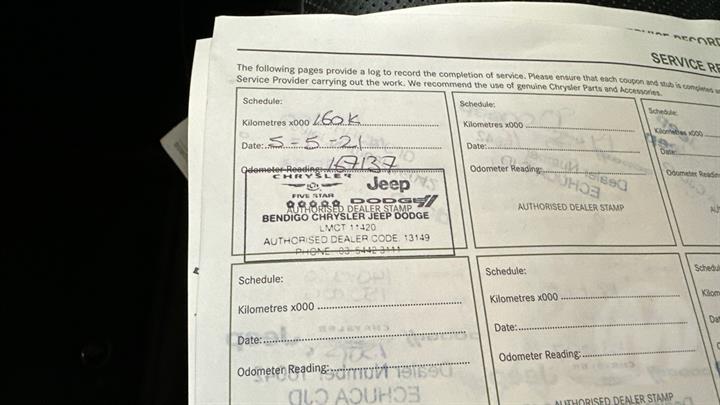 SERVICE RE
The following pages provide a log to record the completion of service. Please ensure that each coupon and stub is completed
Service Provider carrying out the work. We recommend the use of genuine Chrysler Parts and Accessories.
Schedule:
Kilometres x000 160K
Date: 5-5-21
Odometer Reading: 157137
CHRYSLER
Jeep
FIVE STAR
DODGE
AUTHORISED DEALER STAMP
BENDIGO CHRYSLER JEEP DODGE
LMCT 11420
AUTHORISED DEALER CODE: 13149
PHONE: 03 5442 3111
Schedule:
Kilometres x000
Date:
Odometer Reading:
AUTHORISED DEALER STAMP
Schedule:
Kilometres x000
Date:
Odometer Readin
Schedule:
Kilometres x000
Date:
Odometer Reading:
Schedule:
Kilometres x000
Date:
Odometer Reading:
AUTHORISED DEALER STAMP
Schedul
Kilom
Dat